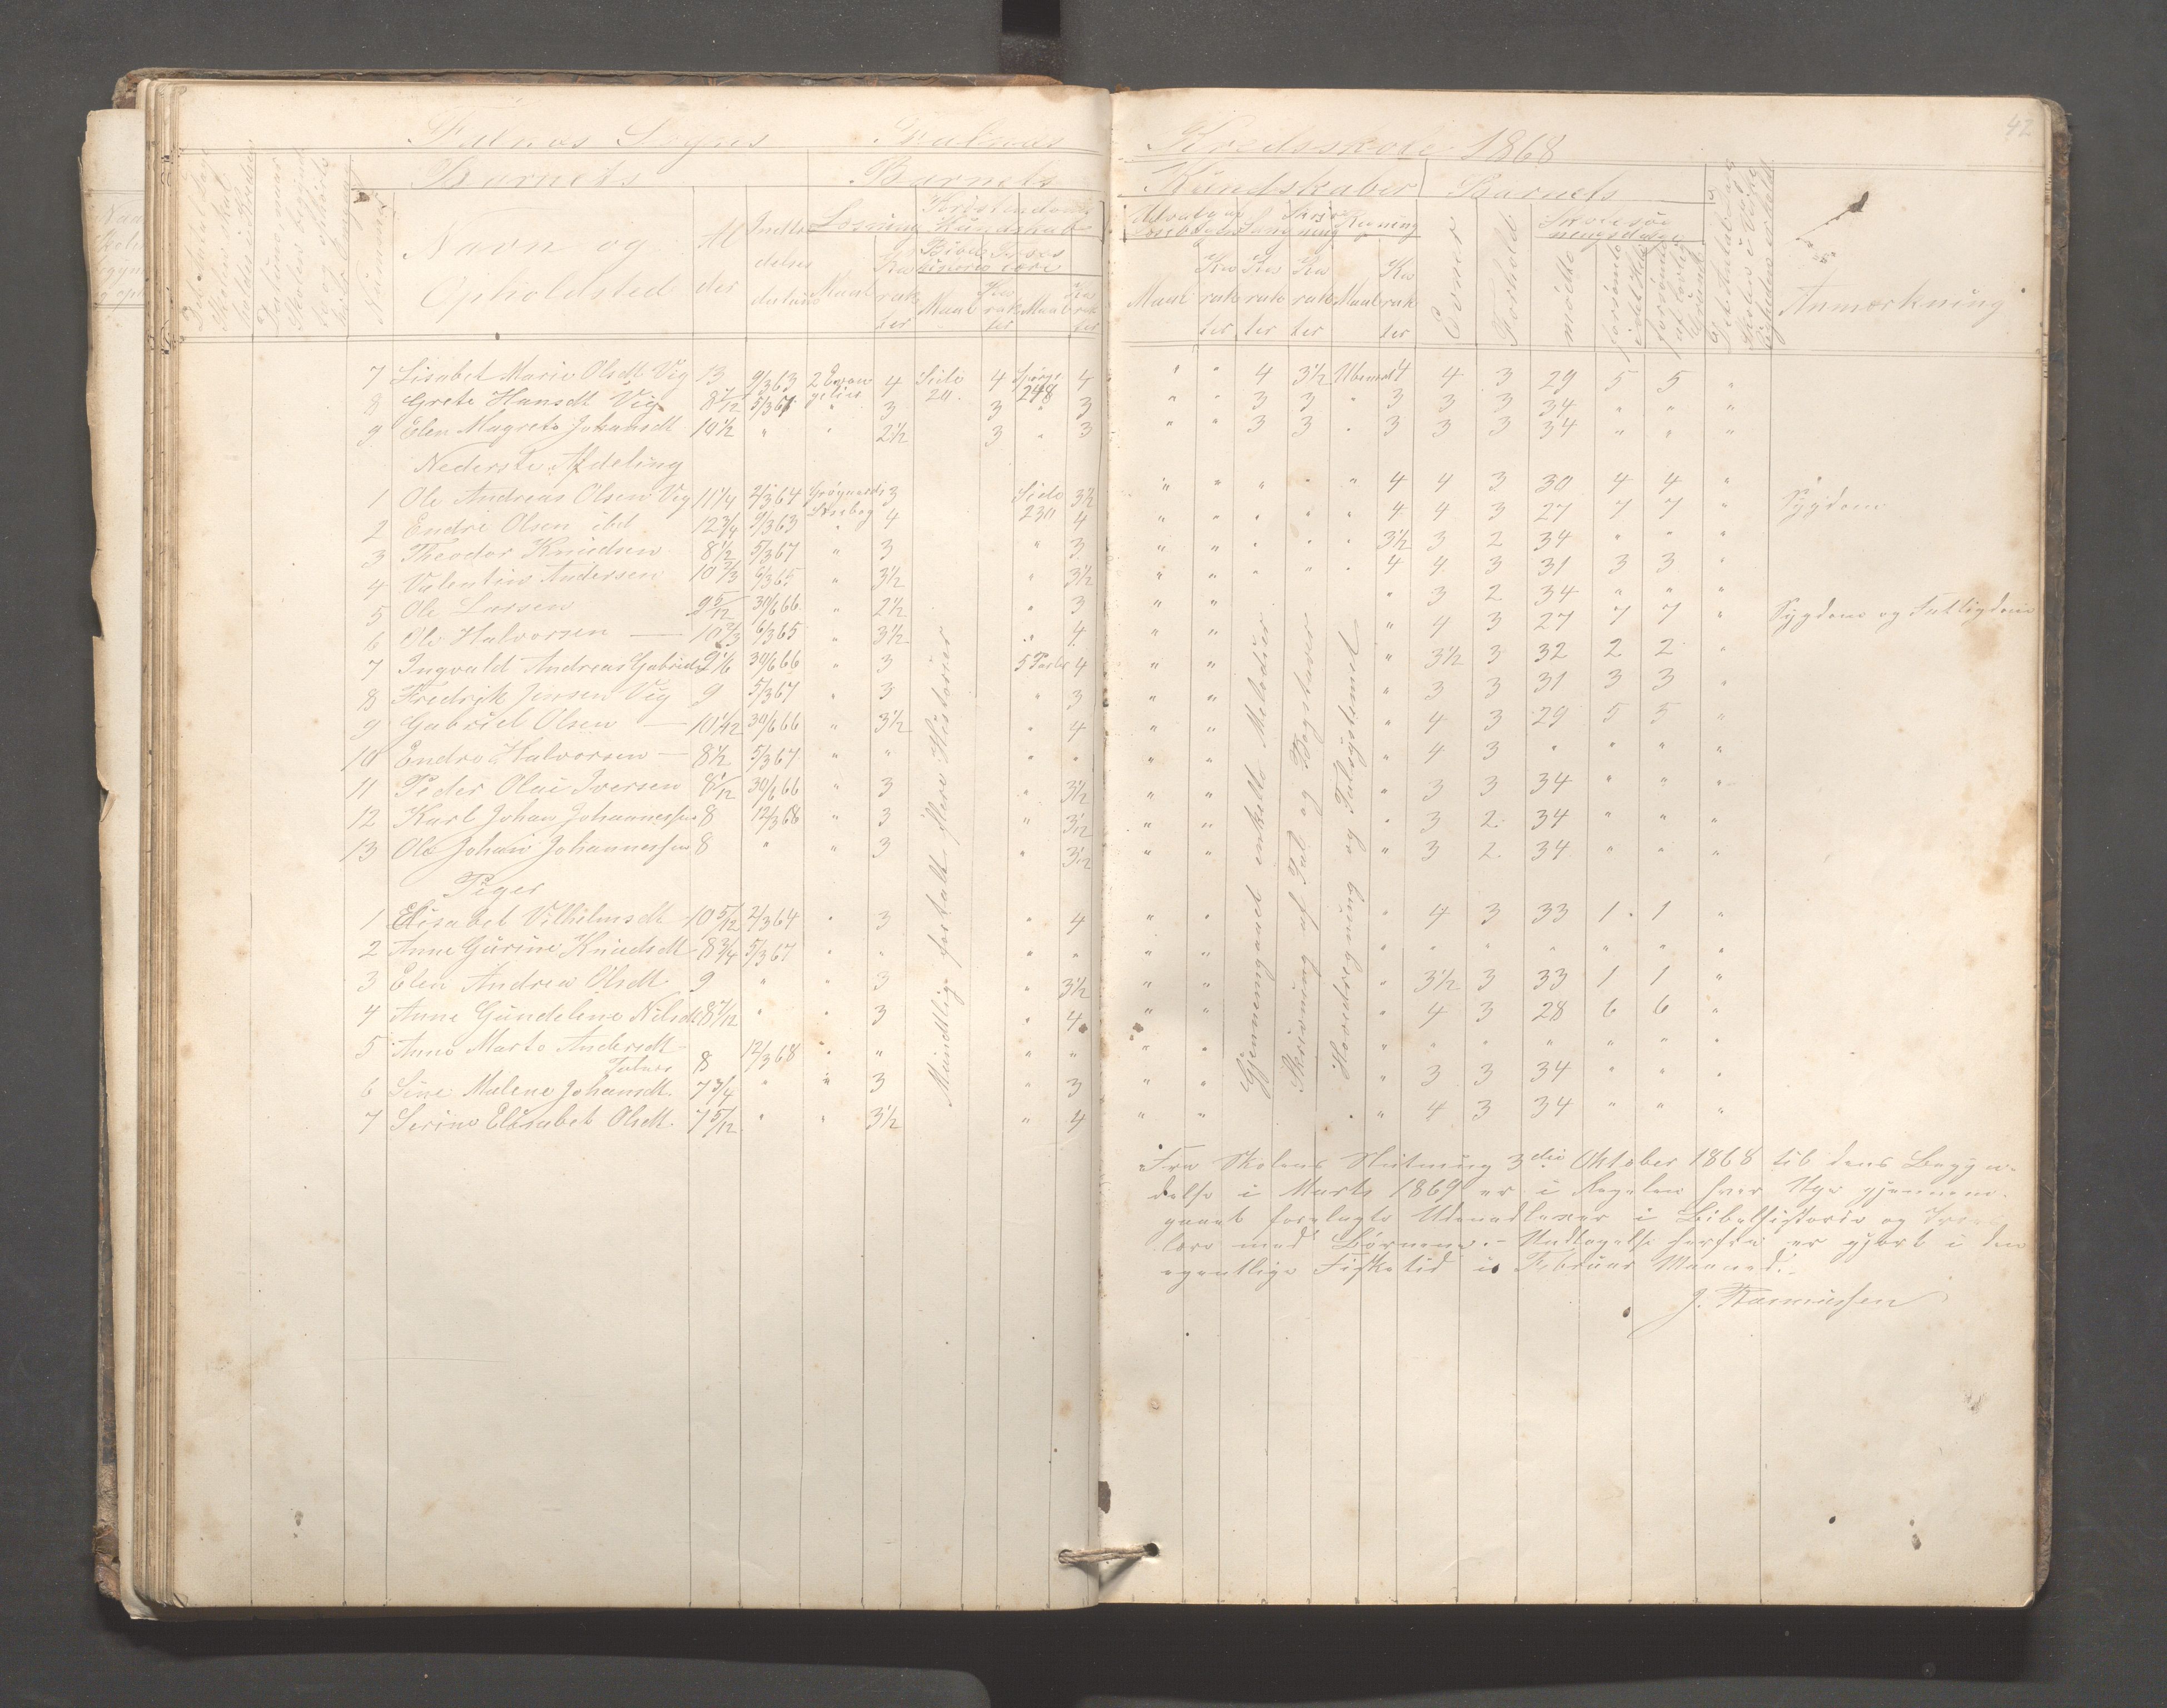 Falnæs Sogns Falnæs Kredsskole 1868
42
Barnets Barnets Kundskaber Barnets
Det Antal Dage Skolen skal holdes i Kredsen
Datum, naar Skolen begynder og sluttes hver Omgang
Nummer
Navn og Opholdsted
Alder
Indtrædelses datum
Læsning Maal Karakter
Kristendoms Kundskab
Bibelhistorie Maal Karakter
Troeslære Maal Karakter
Udvalg af Læsebogen Maal Karakter
Sang Karakter
Skrivning Karakter
Regning Maal Karakter
Evner
Forhold
Skolesøgningsdage
mødte
forsømte i det Hele
forsømte af lovlig Grund
Det Antal Dage Skolen i Virkeligheden er holdt
Anmærkning
7 Lisabet Marie Olsdt Vig 13 9/3 63 2 Evangelier 4 Side 20. 4 Spørgs 248 4 " " 4 3½ Ubenævnt 4 4 3 29 5 5 "
8 Grete Hansdt Vig 8 7/12 5/3 67 " 3 3 " 3 " " 3 3 " 3 3 3 34 " " "
9 Elen Magrete Johansdt 10½ " " 2½ 3 " 3 " " 3 3 " 3 3 3 34 " " "
Nederste Afdeling
1 Ole Andreas Olsen Vig 11¼ 2/3 64 3 Side 230 3½ " " " " " 4 4 3 30 4 4 "
2 Endre Olsen ibd 12¾ 9/3 63 " 4 4 " " " " " 4 4 3 27 7 7 " Sygdom
3 Theodor Knudsen 8½ 5/3 67 " 3 " 3 " " " " " 3½ 3 2 34 " " "
4 Valentin Andersen 10⅔ 6/3 65 " 3½ " 3½ " " " " " 4 4 3 31 3 3 "
5 Ole Larsen 9 5/12 30/6 66 " 2½ " 3 " " " 3 2 34 " " "
6 Ole Halvorsen — 10⅔ 6/3 65 " 3½ " 4 " " " 4 3 27 7 7 " Sygdom og Fattigdom
7 Ingvald Andreas Gabriels 9⅙ 30/6 66 " 3 5 Parter 4 " " " 3½ 3 32 2 2 "
8 Fredrik Jensen Vig 9 5/3 67 " 3 " 3 " " " 3 3 31 3 3 "
9 Gabriel Olsen — 10 1/12 30/6 66 " 3½ " 4 " " " 4 3 29 5 5 "
10 Endre Halvorsen — 8½ 5/3 67 " " " " " " " 4 3 " " " "
11 Peder Olai Iversen 8 1/12 30/6 66 " 3 " 3½ " " " 3 3 34 " " "
12 Karl Johan Johannessen 8 12/3 68 " 3 " 3½ " " " 3 2 34 " " "
13 Ole Johan Johannessen 8 " " 3 " 3½ " " " 3 2 34 " " "
Piger
1 Elisabet Vilhelmsdt 10 5/12 2/3 64 " 3 " 4 " " " 4 3 33 1 1 "
2 Anne Gurine Knudsdt 8¾ 5/3 67 " " " " " " " " " " " " "
3 Elen Andrea Olsdt 9 " " 3 " 3½ " " " 3½ 3 33 1 1 "
4 Anne Gundeline Nilsdt 8 7/12 " " 3 " 4 " " " 4 3 28 6 6 "
5 Anne Marta Andersdt Falnæs 8 12/3 68 " " " " " " " " " " " " "
6 Sine Malene Johansdt 7¾ " " 3 " 3 " " " 3 3 34 " " "
7 Serine Elisabet Olsdt 7 5/12 " " 3½ " 4 " " " 4 3 34 " " "
Mundtlige fortalt flere Historier
Gjennemgaaet enkelte Melodier
Skrivning af Tal og Bogstaver
Hovedregning og Talsystemet
Fra Skolens Slutning 3die Oktober 1868 til dens Begyn-
delse i Marts 1869 er i Regelen hver Uge gjennem-
gaaet forelagte Udenadlexer i Bibelhistorie og Troes
lære med Børnene. – Undtagelse herfra er gjort i den
egentlige Fisketid i Februar Maaned.
J. Rasmussen